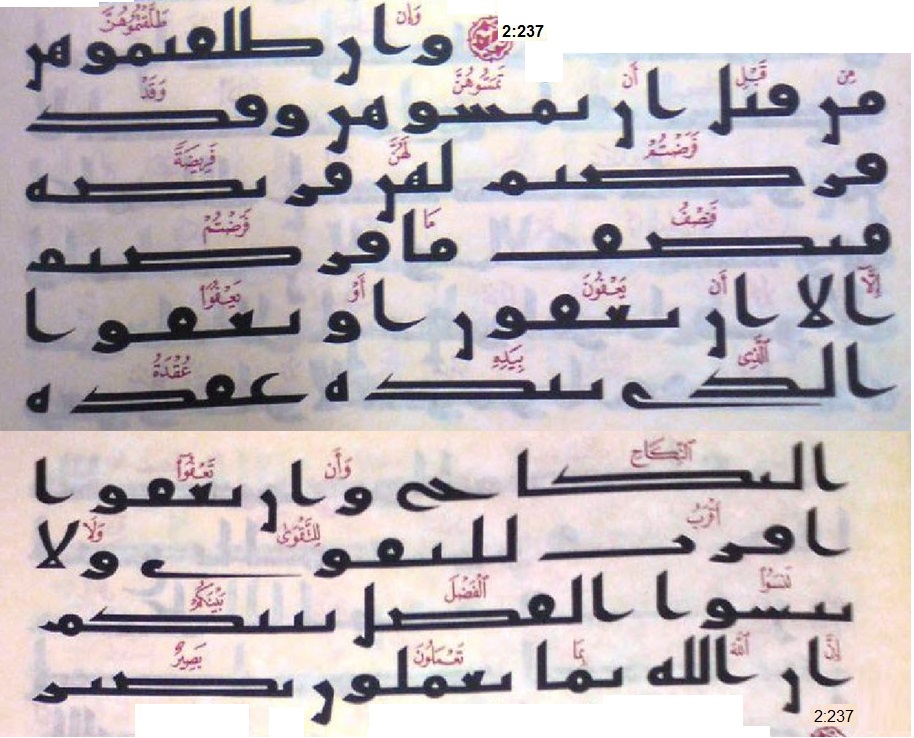 2:237
وَإِن طَلَّقْتُمُوهُنَّ
وان طلقتموهن
مِن قَبْلِ أَن تَمَسُّوهُنَّ وَقَدْ
من قبل ان تمسوهن وقد
فَرَضْتُمْ لَهُنَّ فَرِيضَةً
فرضتم لهن فريضه
فَنِصْفُ مَا فَرَضْتُمْ
فنصف ما فرضتم
إِلَّآ أَن يَعْفُونَ أَوْ يَعْفُوَا۟
الا ان يعفون او يعفوا
ٱلَّذِى بِيَدِهِ عُقْدَةُ
الذى بيده عقده
ٱلنِّكَاحِ وَأَن تَعْفُوٓا۟
النكاح وان تعفوا
أَقْرَبُ لِلتَّقْوَىٰ وَلَا
اقرب للتقوى ولا
تَنسَوُا۟ ٱلْفَضْلَ بَيْنَكُمْ
تنسوا الفضل بينكم
إِنَّ ٱللَّهَ بِمَا تَعْمَلُونَ بَصِيرٌ
ان الله بما تعملون بصير
2:237